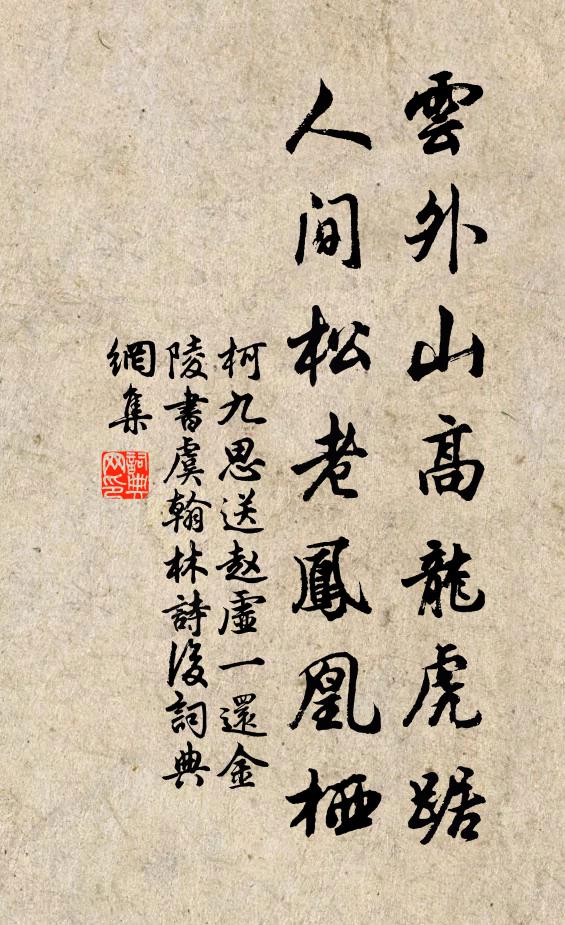 雲外山高龍虎踞
人间松老鳳凰栖
柯九思送赵虛一還金
陵書虞翰林詩後詞典
網集
詞典
网印